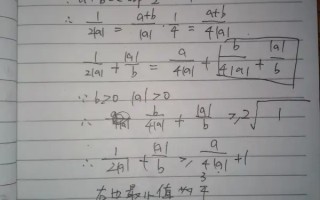 ∴ 1/2|a| = a+b/|a| · 1/4 = a+b/4|a|
1/2|a| + |a|/b = a/4|a| + b/4|a| + |a|/b
∵ b>0 |a|>0
∴ b/4|a| + |a|/b ≥ 2√1
∴ 1/2|a| + |a|/b ≥ a/4|a| + 1
最小值为 3/4